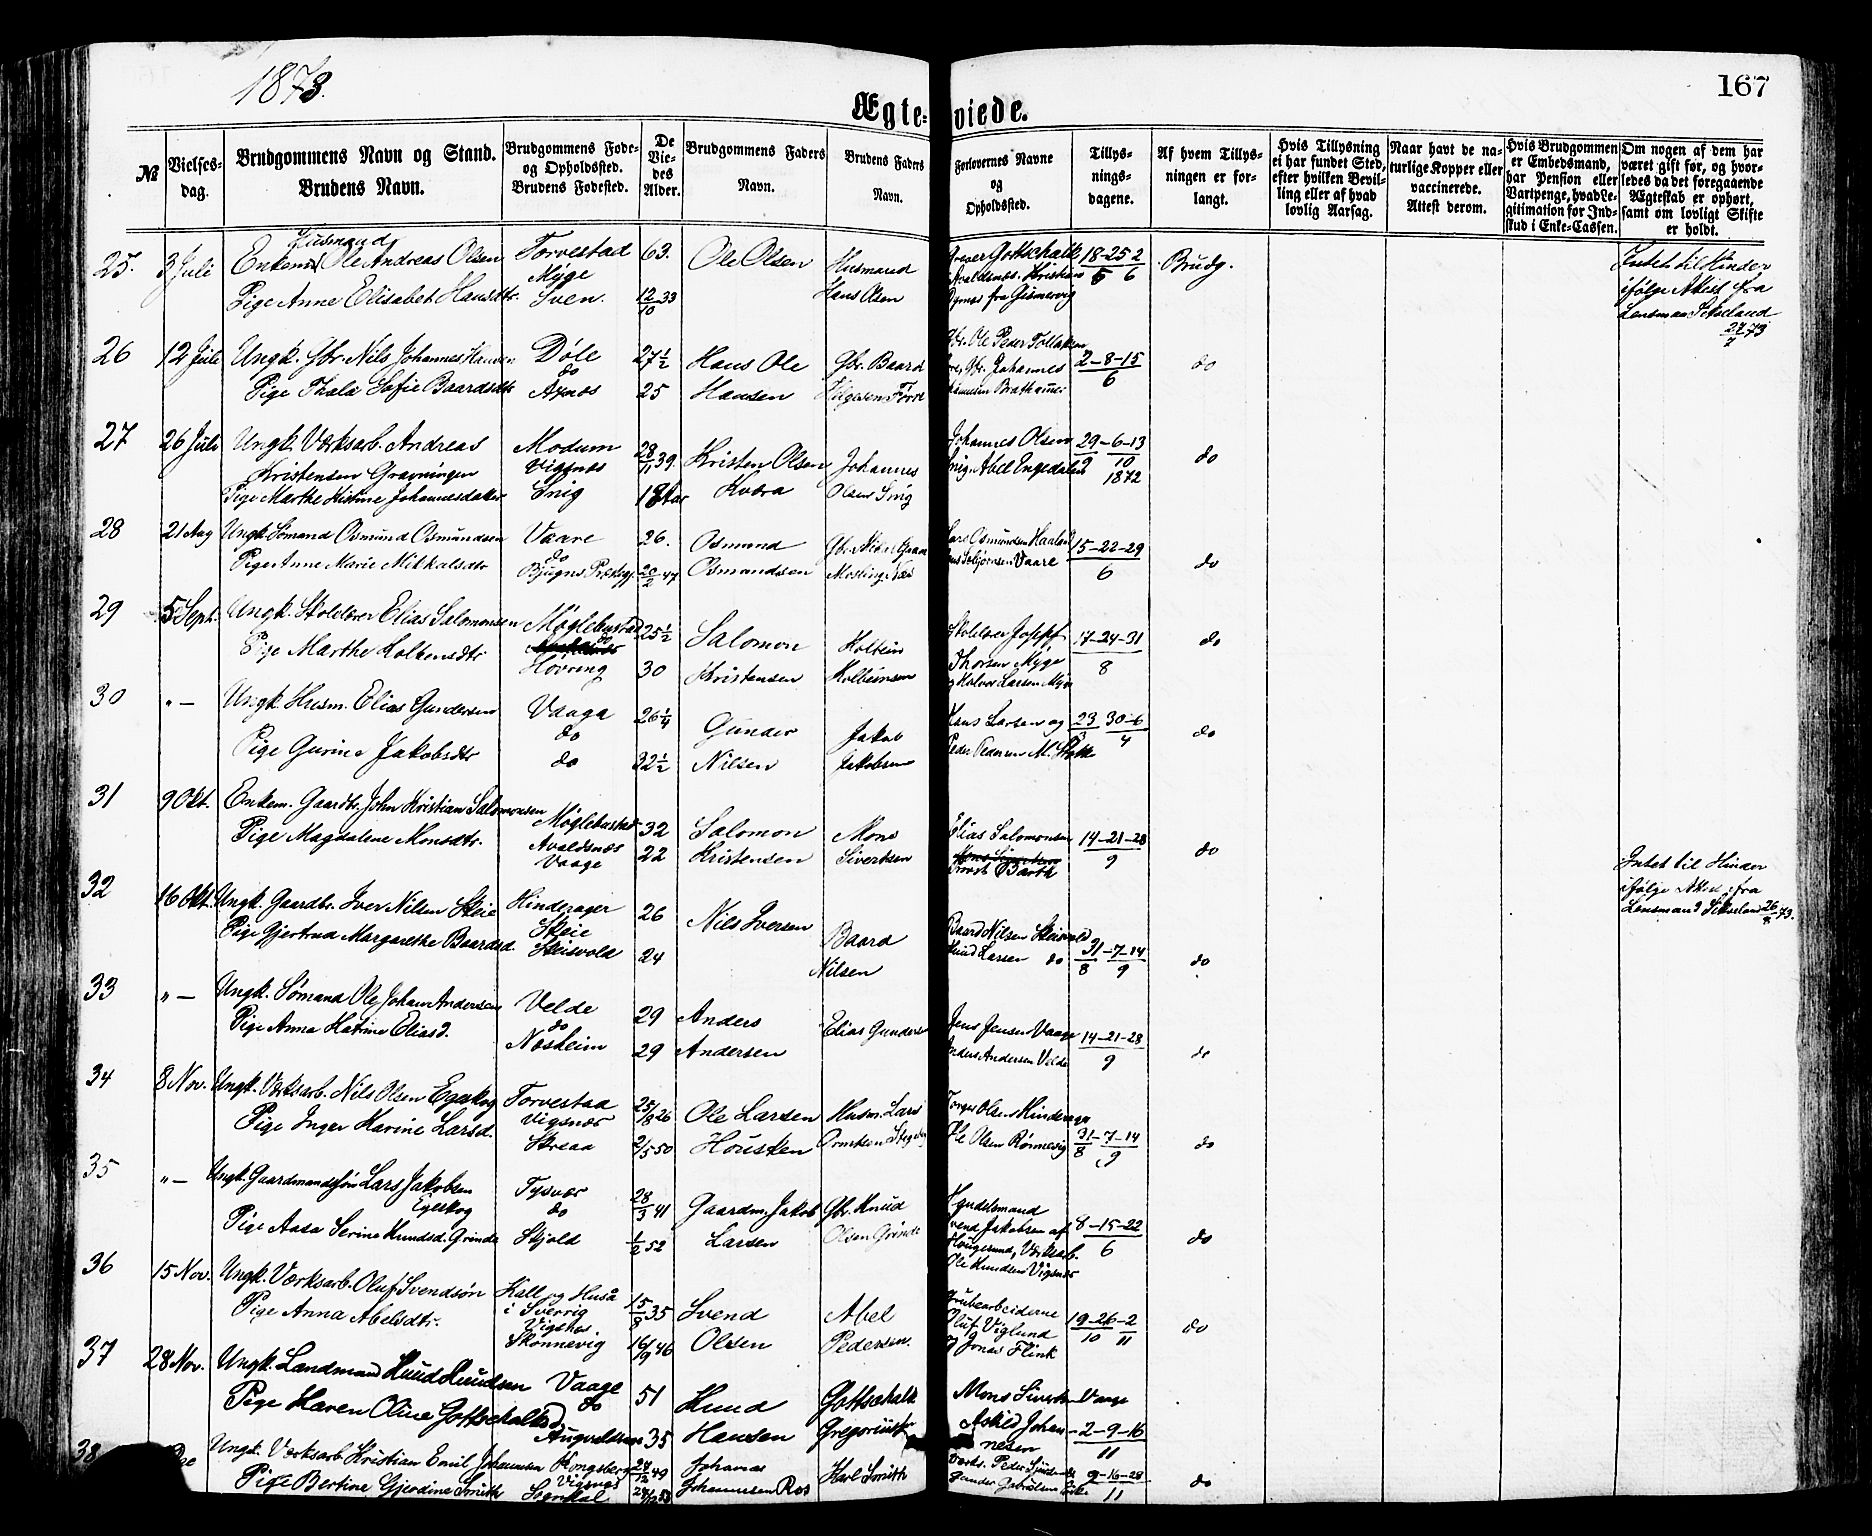 1873.
167
Ægte-viede.
№
Vielses-dag.
Brudgommens Navn og Stand.
Brudens Navn.
Brudgommens Føde-
og Opholdssted.
Brudens Fødested.
De
Vie-
des
Alder.
Brudgommens Faders
Navn.
Brudens Faders
Navn.
Forlovernes Navne
og
Opholdssted.
Tillys-
nings-
dagene.
Af hvem Tillys-
ningen er for-
langt.
Hvis Tillysning
ei har fundet Sted,
efter hvilken Bevil-
ling eller af hvad
lovlig Aarsag.
Naar havt de na-
turlige Kopper eller
vaccinerede.
Attest derom.
Hvis Brudgommen
er Embedsmand,
har Pension eller
Vartpenge, hvad Le-
gitimation for Ind-
skud i Enke-Cassen.
Om nogen af dem har
været gift før, og hvor-
ledes da det foregaaende
Ægteskab er ophørt,
samt om lovligt Skifte
er holdt.
25. 3 Juli Enkem. Husmand Ole Andreas Olsen Torvestad Myge 63. Ole Olsen Husmand Gottschalk 18-25 2 / 5 6 Brudg. Intet til Hinder
Pige Anne Elisabet Hansdtr. Sven. 12/10 33 Hans Olsen Kristian fra Gismervig ifølge Attest fra
Lensmand 73
26 12 Juli Ungk. Gbr. Nils Johannes Hansen Døle do 27½ Hans Ole Gbr. Baard Ole Peder 2-8-15 / 6 do
Pige Thala Sofie Baardsdtr Axnes 25 Hansen Johannes
27 26 Juli Ungk. Værksarb. Andreas Modum 28/11 39. Kristen Olsen Johannes Johannes Olsen 29-6-13 / 9 10 do
Kristensen Gravningen Vigsnæs Snig. Abel Engedalen 1872
Pige Marthe Kistine Johannesdatter Snig 18 Aar Hvera Olsen Snig
28 21 Aug Ungk. Sømand Osmund Osmundsen Vaare do 26. Osmund Lars Osmundsen 15-22-29 / 6 do
Pige Anne Marie Mikkalsdtr Bjugns Præstegj. 20/2 47 Osmundsen Vaare
29 5 Sept. Ungk. Skolelærer Elias Salomonsen Møglebustad do 25½ Salomon Kolbein Skolelærer Josef 17-24-31 / 8 do
Pige Marthe Kolbensdtr Høvring 30 Kristensen Kolbeinsen Thorsen Myge
og Halvor Larsen Myge
30 "— Ungk. Husm. Elias Gundersen Vaaga do 26¼ Gunder Jakob Hans Larsen og 23 30-6 / 3 4 do
Pige Gurine Jakobsdtr do 32½ Nilsen Jakobsen Peder Pedersen
31 9 Okt. Enkem. Gaardbr. John Kristian Salomonsen Møglebustad 32 Salomon Mons Elias Salomonsen 14-21-28 / 9 do Intet til Hinder
Pige Magdalene Monsdtr. Avaldsnæs Vaage 22 Kristensen Sivertsen Barth ifølge Attest fra
Lensmand 26/8 73.
32 16 Okt. Ungk. Gaardbr. Iver Nilsen Skeie Hinderager Skeie 26 Nils Iversen Baard Baard Nilsen Skeisvold 31-7-14 / 8 9 do
Pige Gjertrud Margarethe Baardsd. Skeisvold 24 Nilsen Knud Larsen do
33 "— Ungk. Sømand Ole Johan Andersen Velde do 29 Anders Elias Gunders Jens Jensen Vaage 14-21-28 / 9 do
Pige Anna Katrine Eliasd. Nosheim 29 Andersen Anders Andersen Velde
34 8 Nov. Ungk. Værksarb. Nils Olsen Egeskog Torvestad Vigsnæs 25/8 26 Ole Larsen Husm. Lars Torger Olsen Hinderager 31-7-14 / 8 9 do
Pige Inger Karine Larsd. Skreaa 2/5 50 Housken Ormtsen Ole Olsen Rønnevig
35 "— Ungk. Gaardmandssøn Lars Jakobsen Egeskog Tysvær do 28/3 41 Gaardm. Jakob Gbr. Knud Handelsmand 8-15-22 / 6 do
Pige Aasa Serine Knudsd. Grinde Skjold 1/2 52 Larsen Olsen Grinde Svend Jakobsen af
Haugesund, Værksarb.
Ole Knudsen Vigsnæs
36 15 Nov. Ungk. Værksarb. Oluf Svendsøn Kall og Huså 15/8 35 Svend Abel Grubearbeiderne 19-26-2 / 10 11 do
Pige Anna Abelsdtr. i Sverrig Vigsnæs Skonnevig 16/9 46 Olsen Pedersen. Oluf Viglund
og Jonas Flink
37 28 Nov. Ungk. Landmand Knud Knudsen Vaage do 51 Knud Gottschalk Mons Sivertsen Vaage 2-9-16 / 11
Pige Karen Oline Gottschalksd. 35 Hansen Gregoriussen Askild Johannesen
38 Ungk. Værksarb. Kristian Emil Johannesen Kongsberg Vigsnæs 24/12 49 Johannes Karl Smith Værks. Peder 9-16-23 / 11 do
Pige Bertine Gjerdine Smith Sogndal Johannesen Ros Gunder Gabrielsen